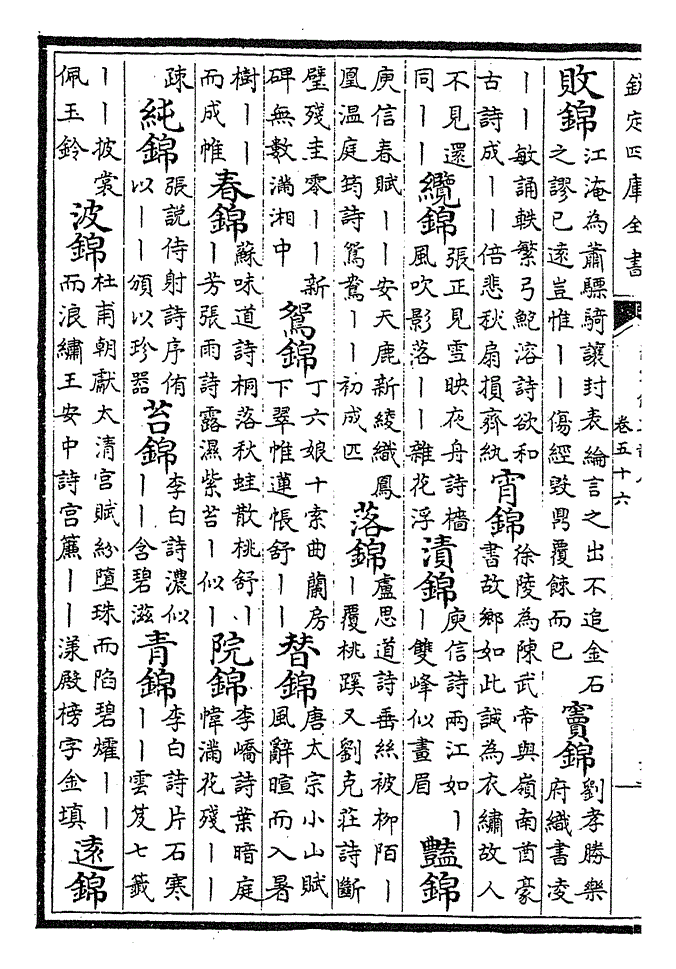 欽定四庫全書
卷五十六
敗錦 江淹為蕭驃騎讓封表綸言之出不追金石之謬已遠豈惟丨丨傷經毀鼎覆餗而已 竇錦 劉孝勝樂府織書凌
丨丨敏誦軼繁弓鮑溶詩欲和古詩成丨丨倍悲秋扇損齊紈 宵錦 徐陵為陳武帝與嶺南酋豪書故鄉如此誠為衣繡故人
不見還同丨丨 纜錦 張正見雪映夜舟詩檣風吹影落丨丨雜花浮 漬錦 庾信詩兩江如丨丨雙峰似畫眉 豔錦
庾信春賦丨丨安天鹿新綾織鳳凰温庭筠詩鴛鴦丨丨初成匹 落錦 盧思道詩垂絲被柳陌丨丨覆桃蹊又劉克莊詩斷
璧殘圭零丨丨新碑無數滿湘中 鴛錦 丁六娘十索曲蘭房下翠帷蓮帳舒丨丨 替錦 唐太宗小山賦風辭暄而入暑
樹丨丨而成帷 春錦 蘇味道詩桐落秋蛙散桃舒丨丨芳張雨詩露濕紫苔丨似丨 院錦 李嶠詩葉暗庭幃滿花殘丨丨
疎 純錦 張説侍射詩序侑以丨丨頒以珍器 苔錦 李白詩濃似丨丨含碧滋 青錦 李白詩片石寒丨丨雲芨七籤
丨丨披裳佩玉鈴 波錦 杜甫朝獻太清宫賦紛墮珠而陷碧㸌丨丨而浪繡王安中詩宫簾丨丨漾殿榜字金填 遠錦